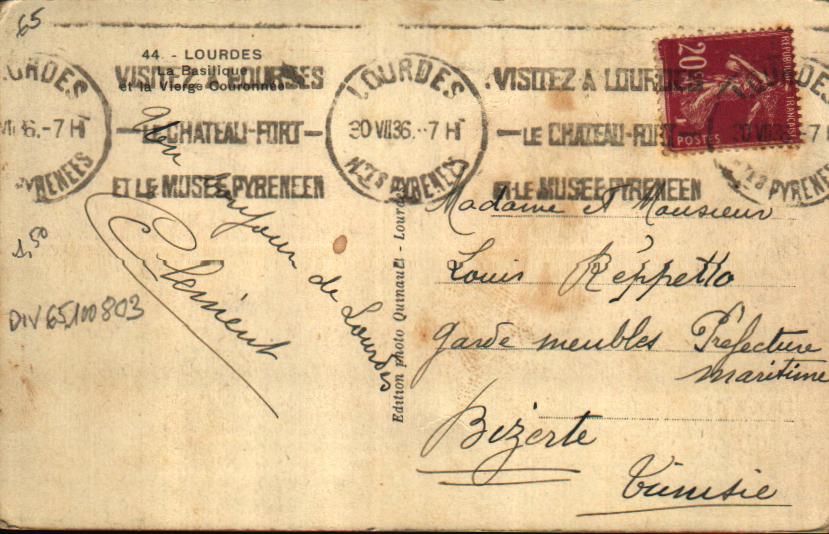 65
44 - LOURDES
La Basilique
et la Vierge Couronnée
LOURDES
VII 36.-7 H
PYRENEES
VISITEZ A LOURDES
LE CHATEAU-FORT
ET LE MUSEE PYRENEEN
LOURDES
30 VII 36.-7 H
HTES PYRENEES
VISITEZ A LOURDES
LE CHATEAU-FORT
ET LE MUSEE PYRENEEN
LOURDES
30 VII 36.-7
HTES PYRENEES
20c
POSTES
REPUBLIQUE FRANCAISE
bonjour de Lourdes
Clément
1,50
DIV65100803
Edition photo Quinault - Lourdes
Madame et Monsieur
Louis Réppetto
Garde meubles Préfecture
maritime
Bizerte
Tunisie